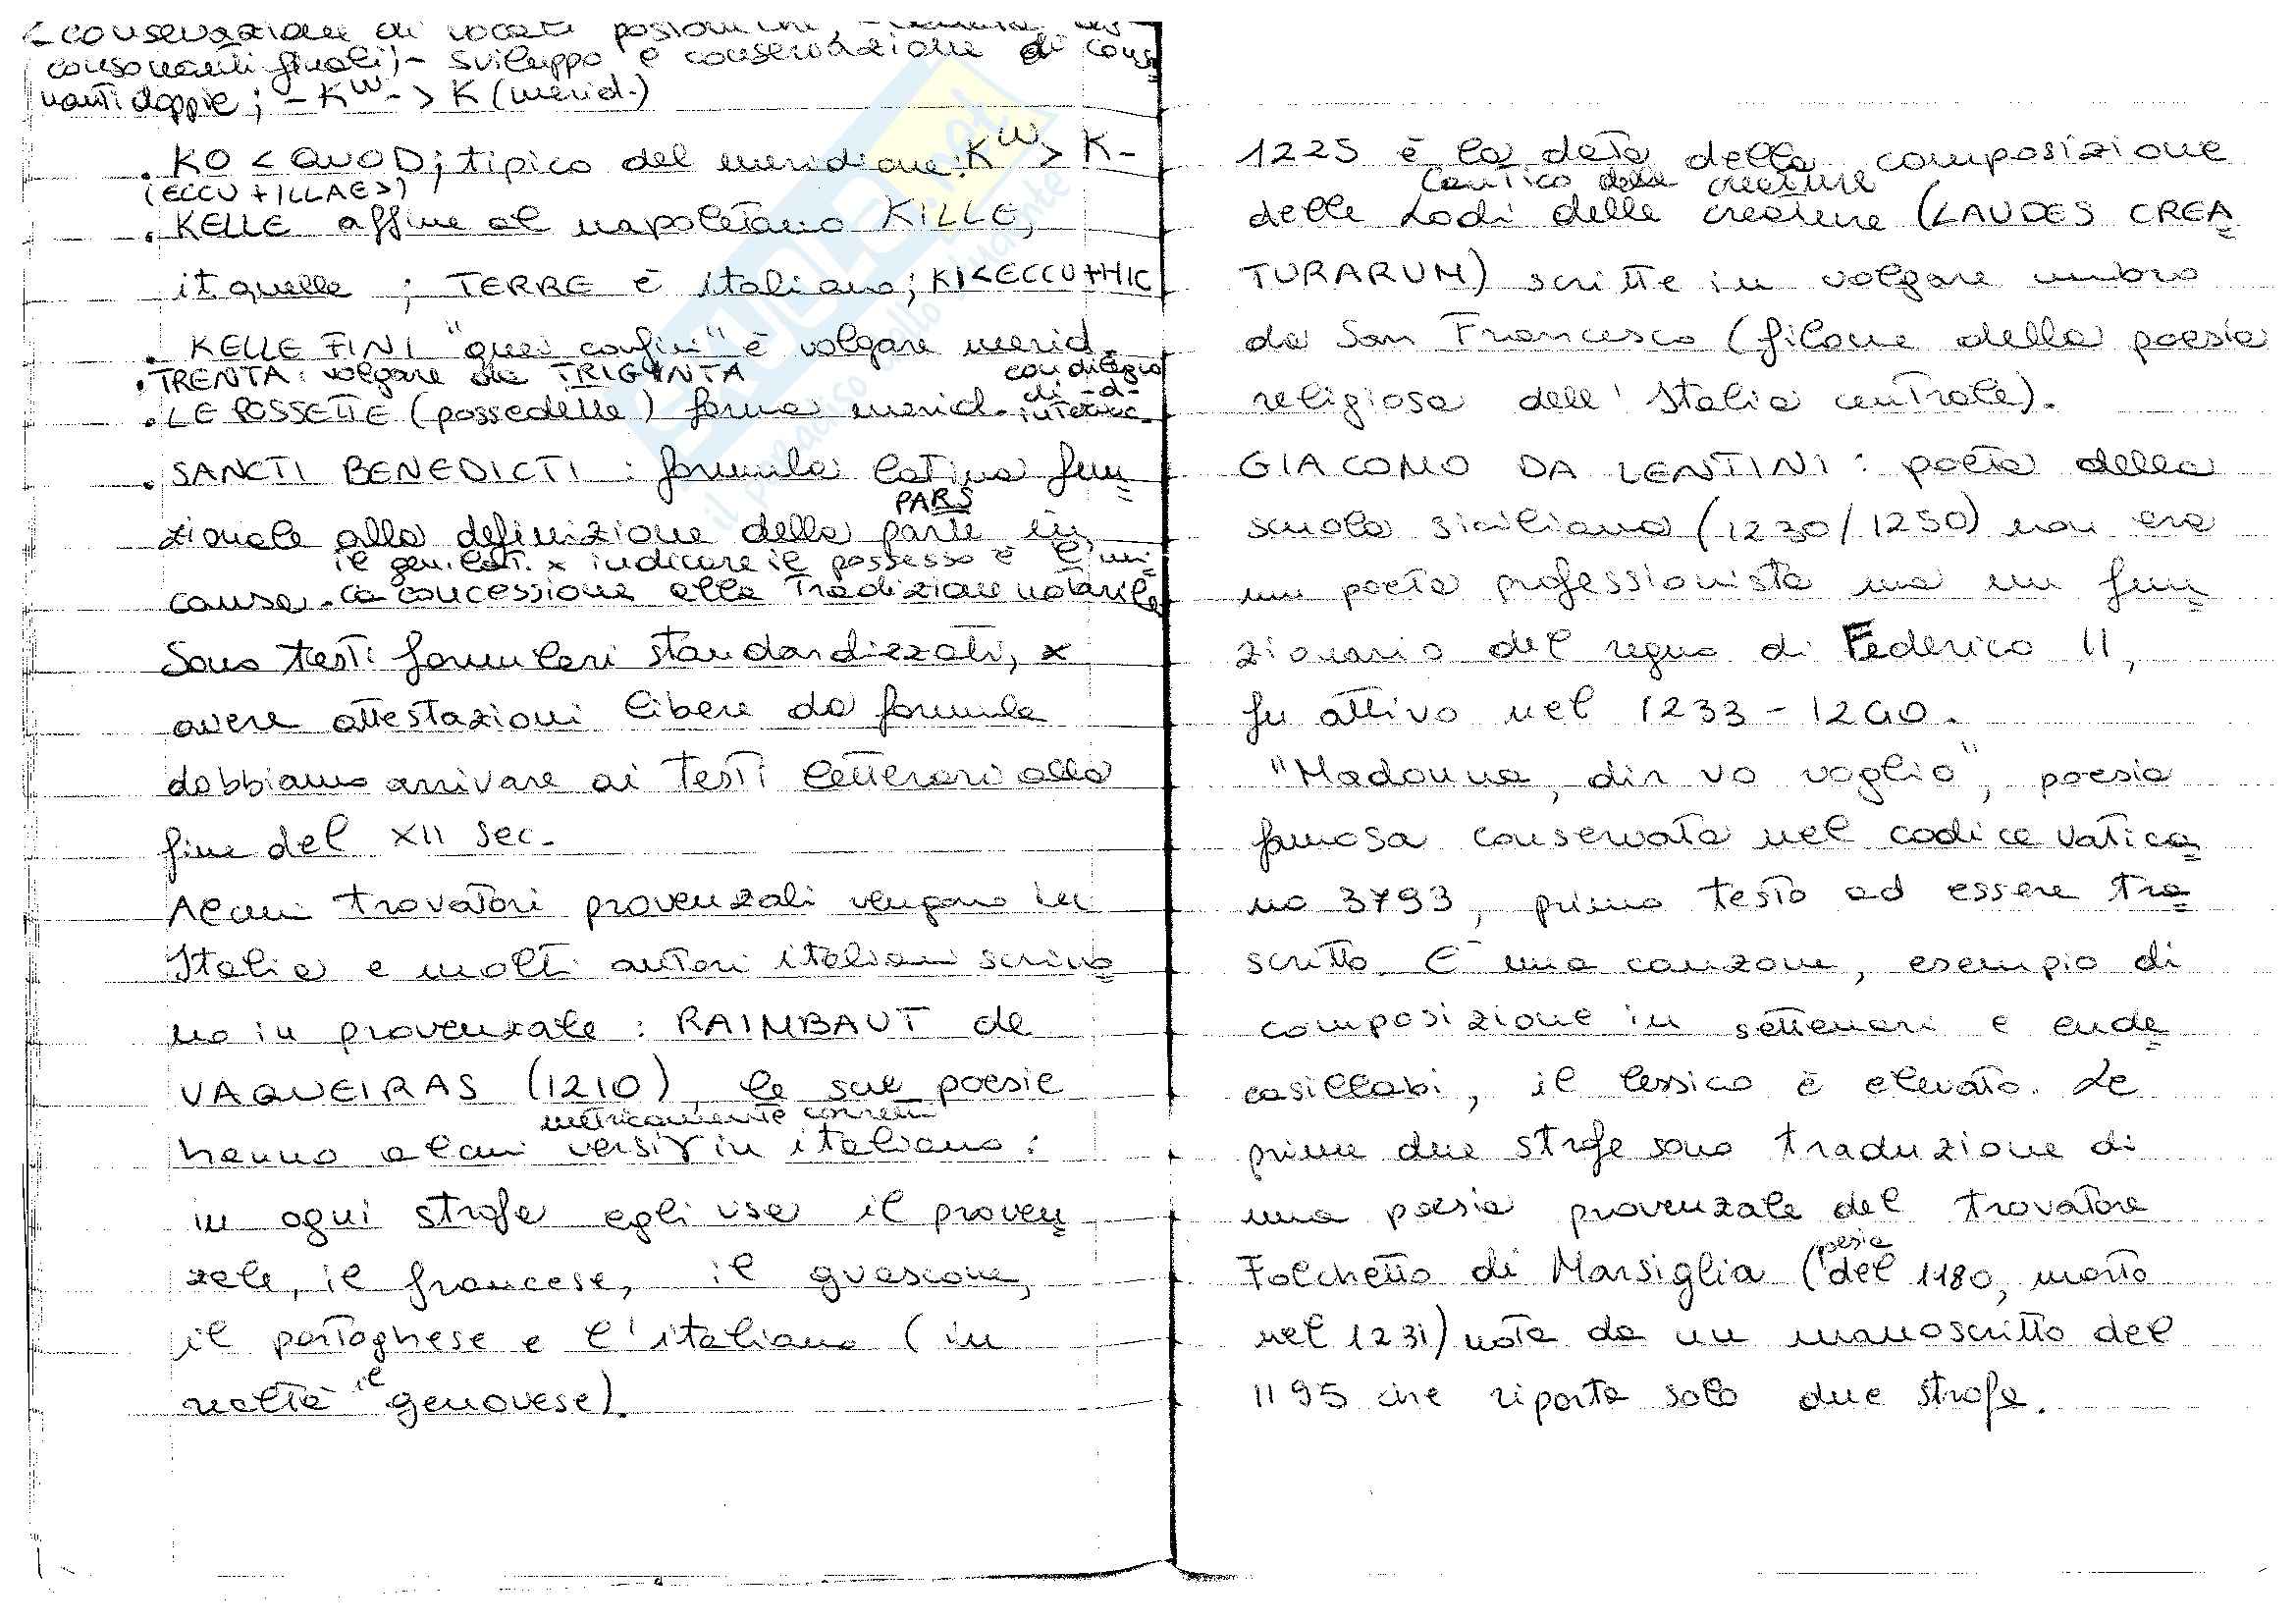 - conservazione di vocali
consonanti finali) - sviluppo e conservazione di conso=
nanti doppie; - Kᵂ- > K (merid.)
. KO < QUOD; tipico del meridione: Kᵂ > K-
(ECCU + ILLAE >)
. KELLE affine al napoletano KILLE,
it quelle ; TERRE è italiano; KI < ECCU + HIC
. KELLE FINI "quei confini" è volgare merid.
. TRENTA: volgare da TRIGINTA
. LE POSSETTE (possedelle) forma merid. con dileguo di -d- intervoc.
. SANCTI BENEDICTI : formula latina fun=
zionale alla definizione della parte in
PARS
causa. il gen. lat. x indicare il possesso è l'uni=
ca concessione alla tradizione notarile
Sono testi formulari standardizzati, x
avere attestazioni libere da formule
dobbiamo arrivare ai testi letterari alla
fine del XII sec.
Alcuni trovatori provenzali vengono in
Italia e molti autori italiani scrivo=
no in provenzale : RAIMBAUT de
VAQUEIRAS (1210) le sue poesie
metricamente corretti
hanno alcuni versi in italiano :
in ogni strofe egli usa il proven=
zale, il francese, il guascone,
il portoghese e l'italiano (in
realtà il genovese).
1225 è la data della composizione
Cantico delle creature
delle Lodi delle creature (LAUDES CREA=
TURARUM) scritte in volgare umbro
da San Francesco (filone della poesia
religiosa dell'Italia centrale).
GIACOMO DA LENTINI : poeta della
scuola siciliana (1230/1250) non era
un poeta professionista ma un fun=
zionario del regno di Federico II,
fu attivo nel 1233 - 1240.
"Madonna, dir vo voglio", poesia
famosa conservata nel codice vatica=
no 3793, primo testo ad essere tra=
scritto. È una canzone, esempio di
composizione in settenari e ende=
casillabi, il lessico è elevato. Le
prime due strofe sono traduzione di
una poesia provenzale del trovatore
poesia
Folchetto di Marsiglia (del 1180, morto
nel 1231) nota da un manoscritto del
1195 che riporta solo due strofe.